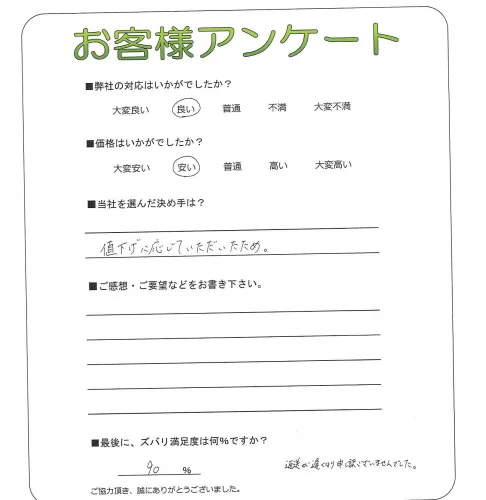 お客様アンケート
■弊社の対応はいかがでしたか？
大変良い 良い 普通 不満 大変不満
■価格はいかがでしたか？
大変安い 安い 普通 高い 大変高い
■当社を選んだ決め手は？
値下げに応じていただいたため。
■ご感想・ご要望などをお書き下さい。
■最後に、ズバリ満足度は何％ですか？
90 ％
返送が遅くなり申し訳ございませんでした。
ご協力頂き、誠にありがとうございました。